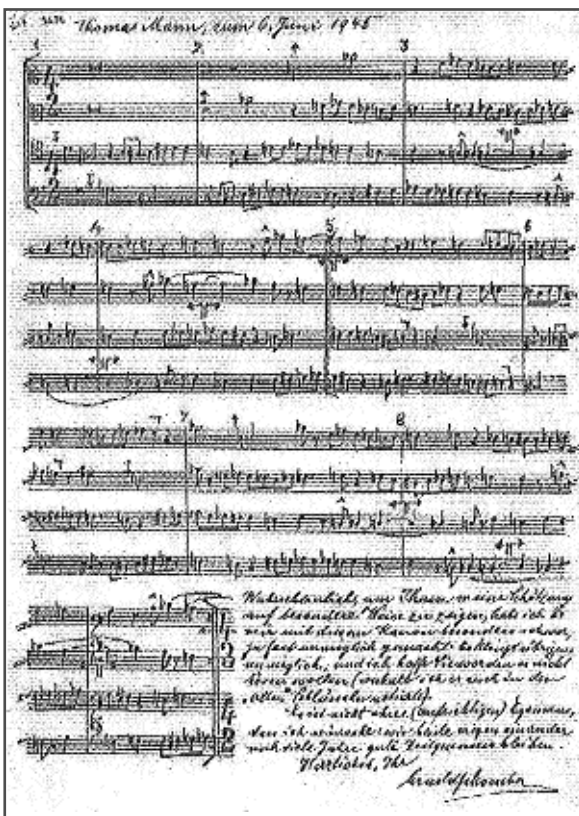 Thomas Mann, zum 6. Juni 1945
1 2 3
4 5 6
7 8
Wahrscheinlich, um Ihnen meine Schätzung
auf besondere Weise zu zeigen, habe ich es
mir mit diesem Kanon besonders schwer,
ja fast unmöglich gemacht. klingt übrigens
unmöglich, und ich hoffe Sie werden nicht
hören wollen (weshalb ich auch in den
„alten" Schlüsseln
Es ist nicht ohne (aufrichtigen) Egoismus,
ich wünsche: wir beide mögen einander
noch viele Jahre gute Zeitgenossen bleiben.
Herzlichst, Ihr
Arnold Schoenberg